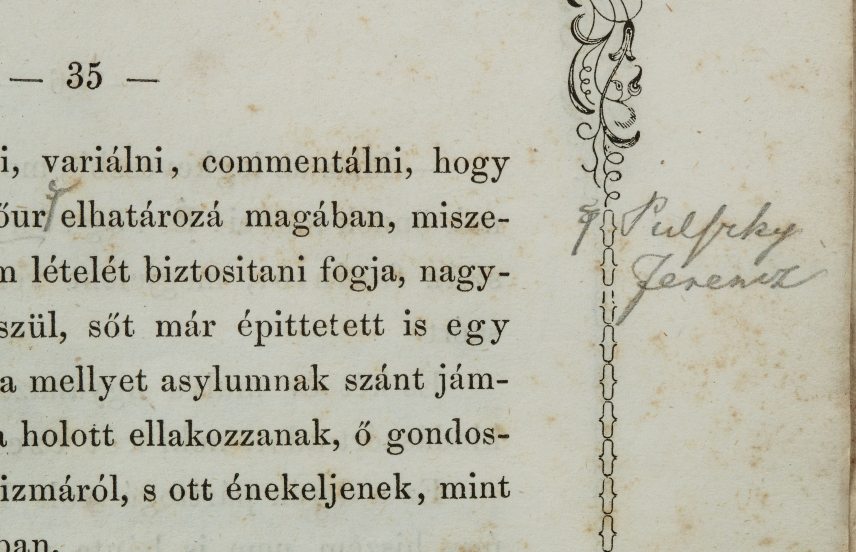 — 35 —
i, variálni, commentálni, hogy
őur elhatározá magában, misze-
m lételét biztositani fogja, nagy-
szül, sőt már épittetett is egy
a mellyet asylumnak szánt jám-
a holott ellakozzanak, ő gondos-
izmáról, s ott énekeljenek, mint
ban.
Pulszky
Ferencz